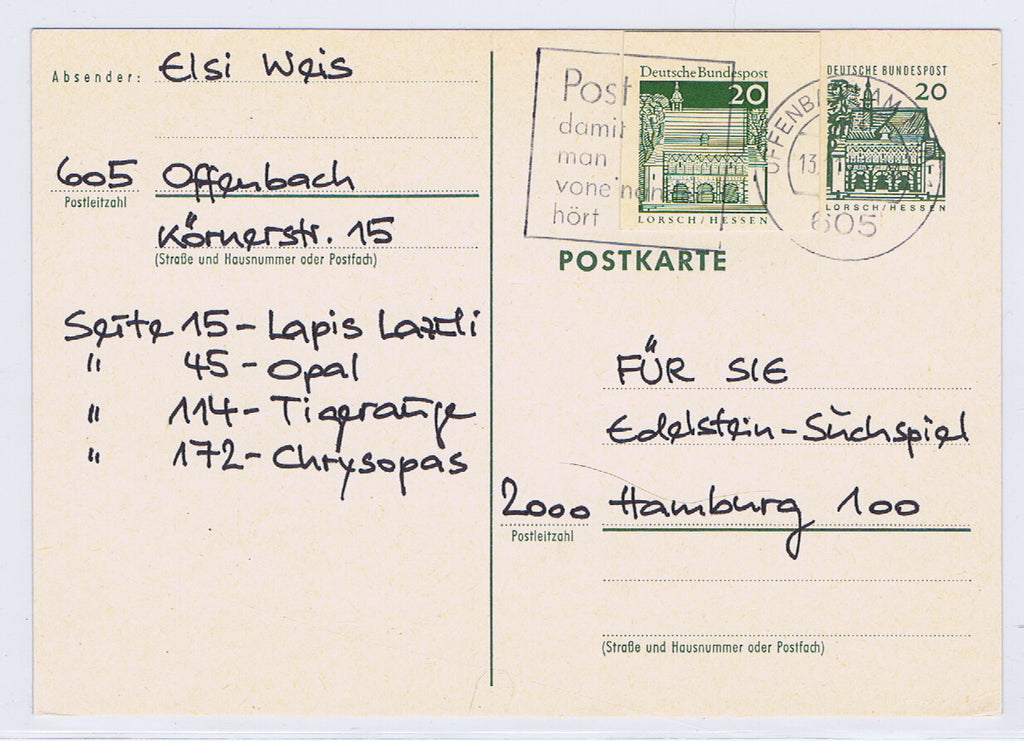 Absender: Elsi Weis
605 Offenbach
Postleitzahl
Körnerstr. 15
(Straße und Hausnummer oder Postfach)
Seite 15 - Lapis Lazuli
" 45 - Opal
" 114 - Tigerauge
" 172 - Chrysopas
Post
damit
man
voneinander
hört
Deutsche Bundespost
20
LORSCH/HESSEN
DEUTSCHE BUNDESPOST
20
LORSCH/HESSEN
OFFENBACH AM
13.
605
POSTKARTE
FÜR SIE
Edelstein-Suchspiel
2000 Hamburg 100
Postleitzahl
(Straße und Hausnummer oder Postfach)